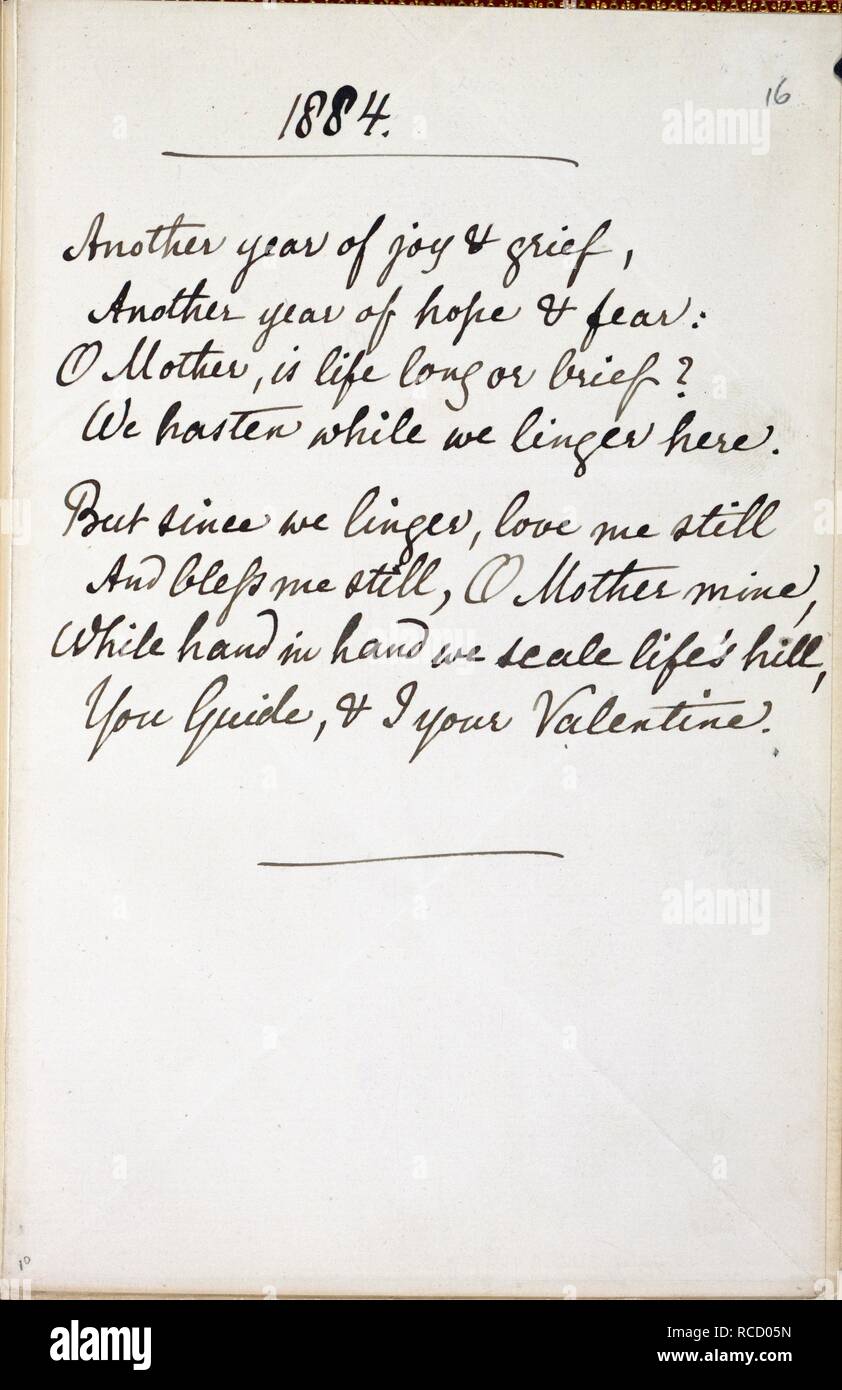 16
1884.
Another year of joy & grief,
Another year of hope & fear:
O Mother, is life long or brief?
We hasten while we linger here.
But since we linger, love me still
And bless me still, O Mother mine,
While hand in hand we scale life's hill,
You Guide, & I your Valentine.
10
alamy
alamy
alamy
Image ID: RCD05N
www.alamy.com